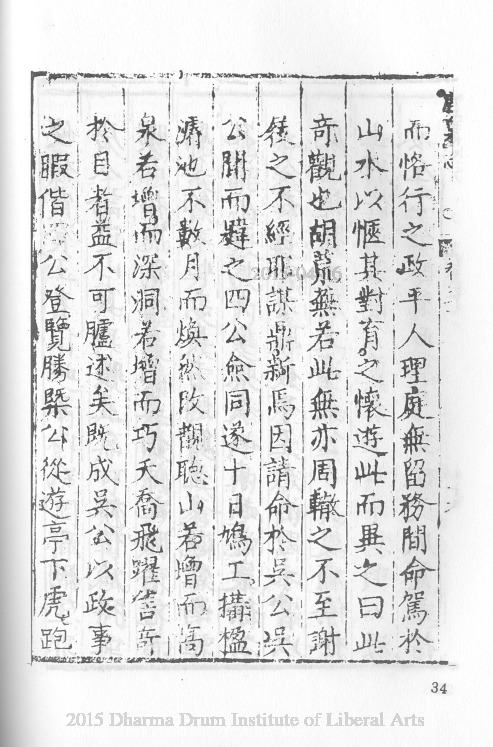 而恪行之政平人理庭無留務間命駕於
山水以愜其對育之懷遊此而異之曰此
奇觀也胡荒蕪若此無亦周轍之不至謝
屐之不經耶謀鼎新焉因請命於吳公吳
公聞而韙之四公僉同遂十日鳩工搆楹
瀦池不數月而煥然改觀聽山若增而高
泉若增而深洞若增而巧夭喬飛躍售奇
於目者益不可臚述矣既成吳公以政事
之暇偕公登覽勝槩公從遊亭下虎跑
34
2015 Dharma Drum Institute of Liberal Arts